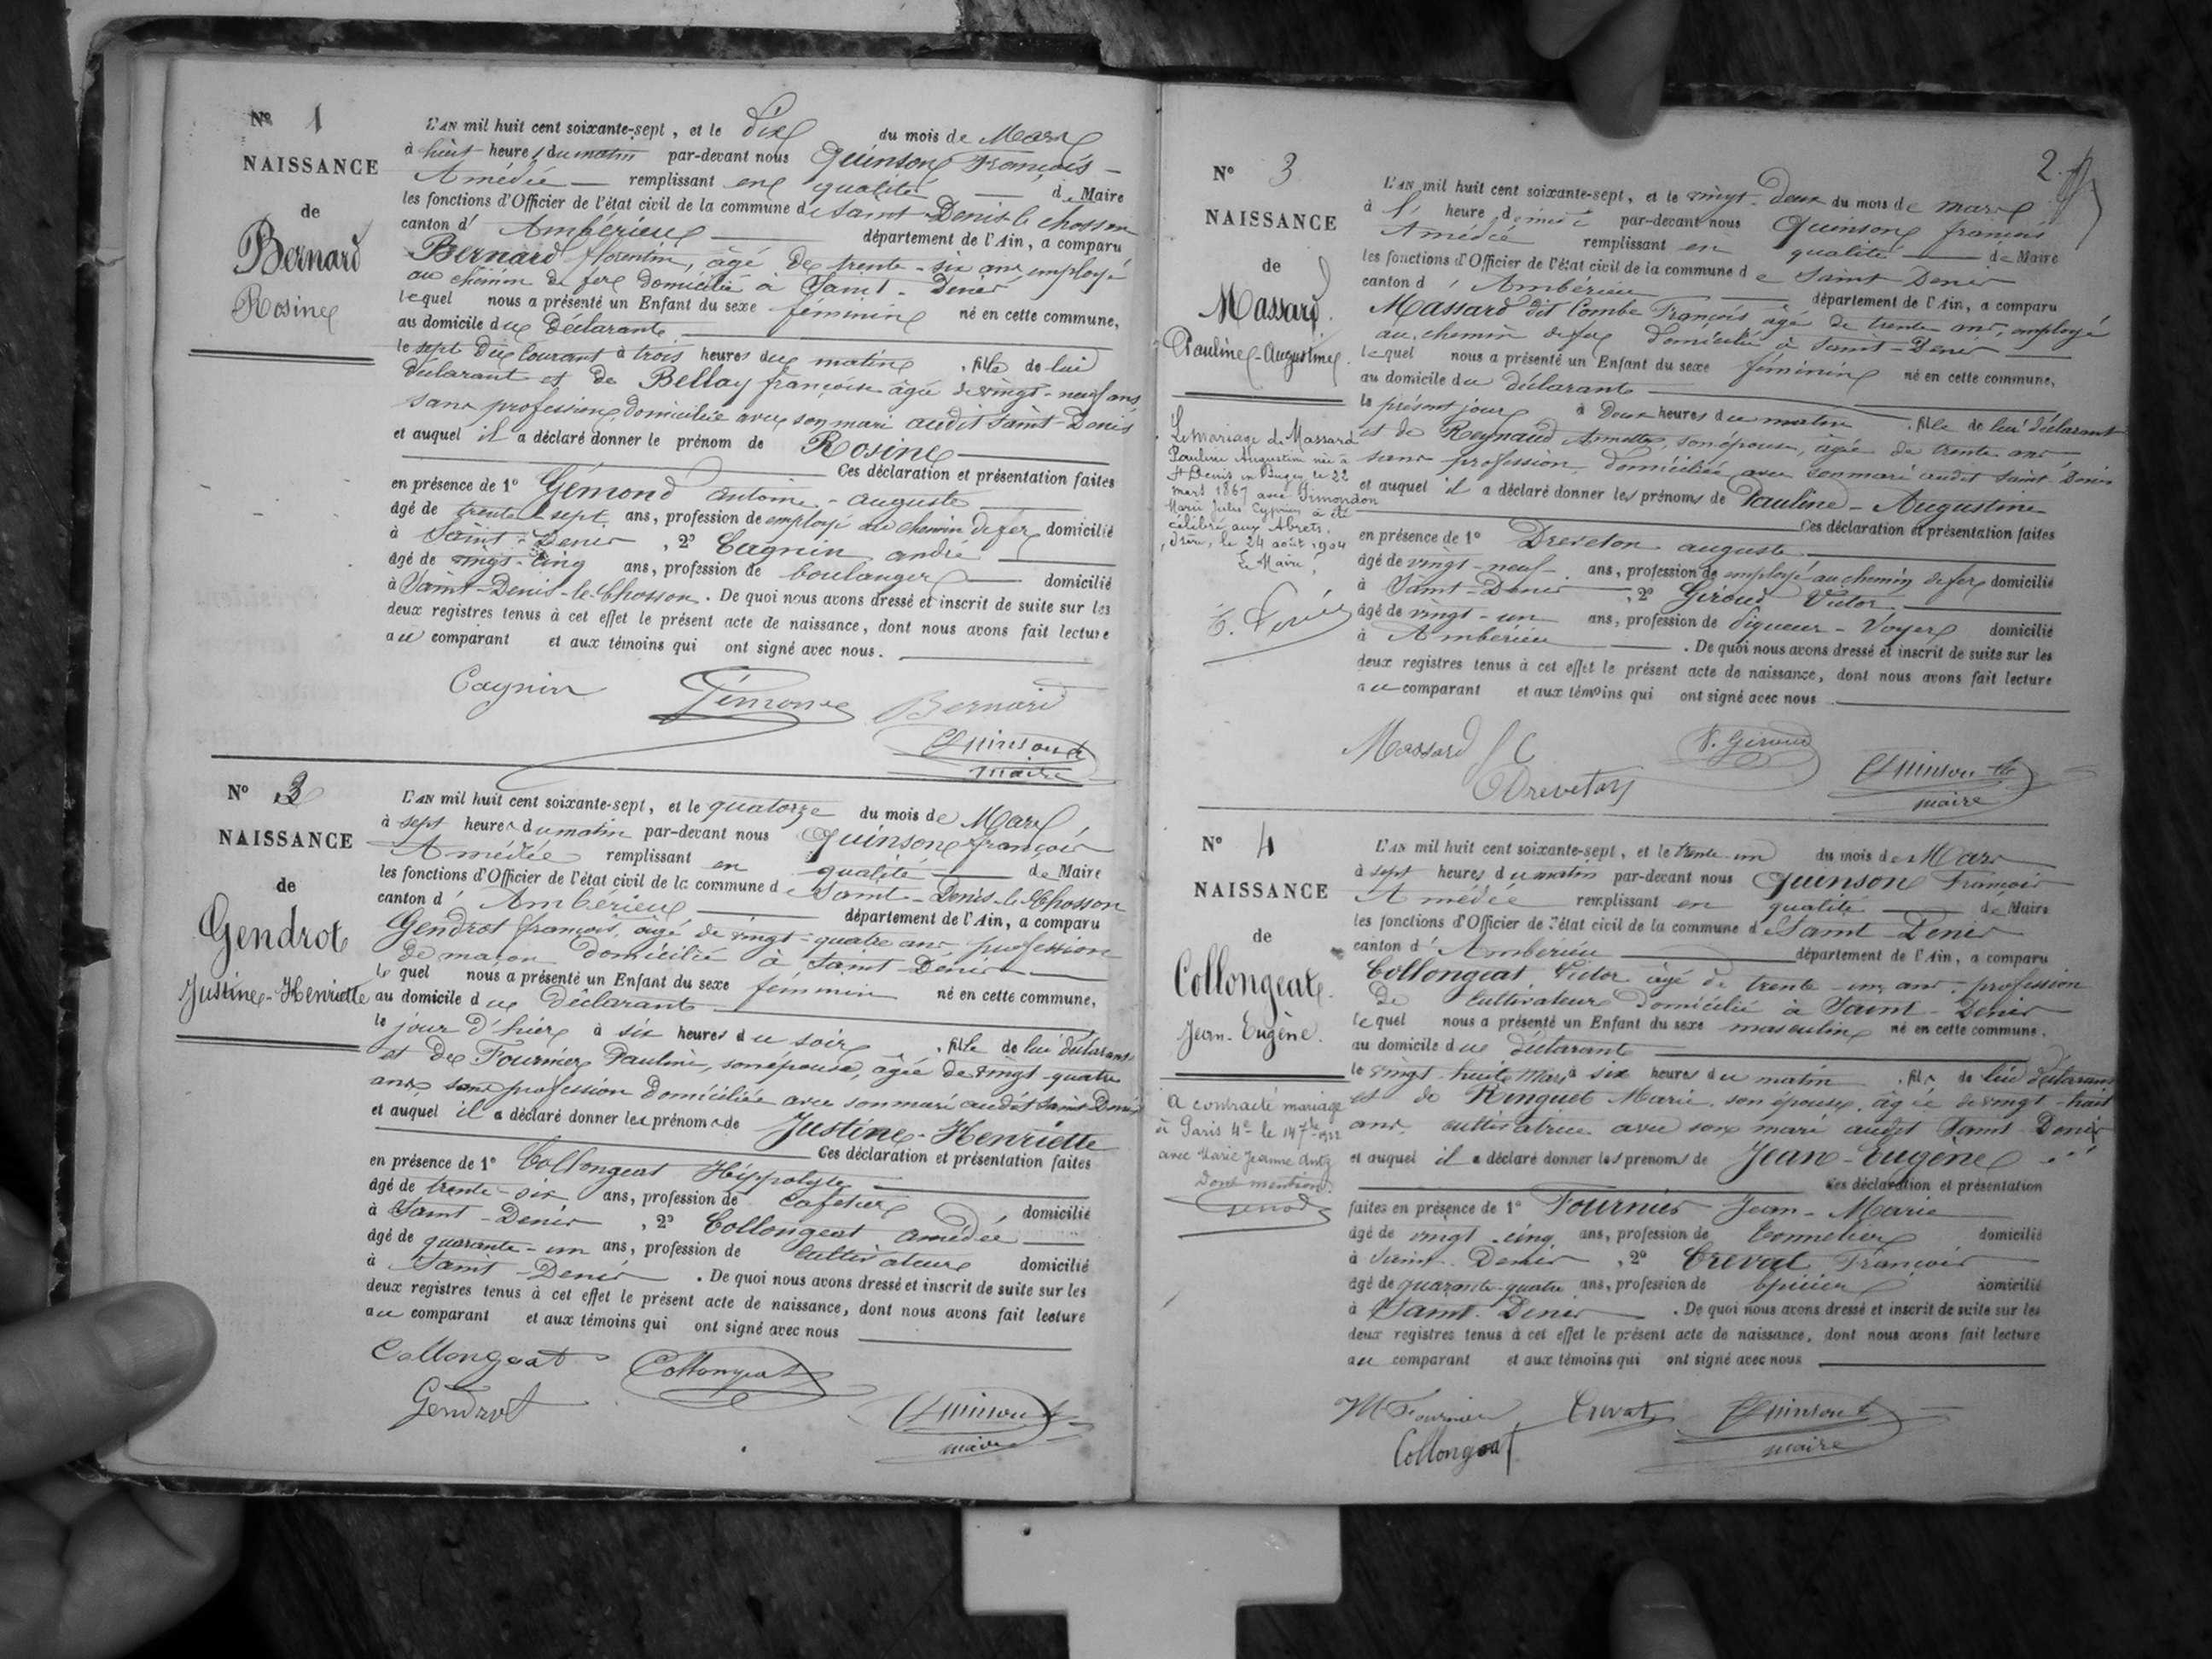 Nº 1
NAISSANCE
de
Bernard
Rosine
L'AN mil huit cent soixante-sept, et le dix du mois de Mars
à huit heures du matin par-devant nous Quinson François-
Amédée — remplissant en qualité — de Maire
les fonctions d'Officier de l'état civil de la commune de Saint-Denis le Chosson
canton d'Ambérieu — département de l'Ain, a comparu
Bernard florentin, âgé de trente-six ans employé
au chemin de fer domicilié à Saint-Denis
lequel nous a présenté un Enfant du sexe féminin né en cette commune,
au domicile du Déclarant —
le sept du courant à trois heures du matin, fille de lui
déclarant et de Bellay françoise âgée de vingt-neuf ans
sans profession domiciliée avec son mari audit Saint-Denis
et auquel il a déclaré donner le prénom de Rosine —
Ces déclaration et présentation faites
en présence de 1º Gémond antoine-auguste —
âgé de trente sept ans, profession de employé au chemin de fer domicilié
à Saint-Denis, 2º Cagnin andré —
âgé de vingt-cinq ans, profession de boulanger — domicilié
à Saint-Denis-le-Chosson. De quoi nous avons dressé et inscrit de suite sur les
deux registres tenus à cet effet le présent acte de naissance, dont nous avons fait lecture
au comparant et aux témoins qui ont signé avec nous. —
Cagnin Gémond Bernard
Quinson A
maire
Nº 2
NAISSANCE
de
Gendrot
Justine-Henriette
L'AN mil huit cent soixante-sept, et le quatorze du mois de Mars
à sept heures du matin par-devant nous Quinson françois
Amédée remplissant en qualité — de Maire
les fonctions d'Officier de l'état civil de la commune de Saint-Denis-le-Chosson
canton d'Ambérieu — département de l'Ain, a comparu
Gendrot françois, âgé de vingt-quatre ans profession
de maçon domicilié à Saint-Denis —
lequel nous a présenté un Enfant du sexe féminin né en cette commune,
au domicile du Déclarant —
le jour d'hier à six heures du soir, fille de lui déclarant
et de Fournier Pauline, son épouse, âgée de vingt-quatre
ans sans profession domiciliée avec son mari audit Saint-Denis
et auquel il a déclaré donner les prénoms de Justine-Henriette
Ces déclaration et présentation faites
en présence de 1º Collongeat Hippolyte —
âgé de trente-six ans, profession de Cafetier domicilié
à Saint-Denis, 2º Collongeat amédée —
âgé de quarante-un ans, profession de Cultivateur domicilié
à Saint-Denis. De quoi nous avons dressé et inscrit de suite sur les
deux registres tenus à cet effet le présent acte de naissance, dont nous avons fait lecture
au comparant et aux témoins qui ont signé avec nous —
Collongeat Collongeat
Gendrot
Quinson A
maire
2.
Nº 3
NAISSANCE
de
Massard
Pauline-Augustine
Le mariage de Massard
Pauline Augustine née à
St Denis en Bugey le 22
mars 1867 avec Simondon
Marie Jules Cyprien a été
célébré aux Abrets,
Isère, le 24 août 1904
Le Maire,
L'AN mil huit cent soixante-sept, et le vingt-deux du mois de mars
à l' heure de midi par-devant nous Quinson françois
Amédée remplissant en qualité — de Maire
les fonctions d'Officier de l'état civil de la commune de Saint Denis
canton d'Ambérieu — département de l'Ain, a comparu
Massard dit Combe François âgé de trente ans, employé
au chemin de fer domicilié à Saint-Denis —
lequel nous a présenté un Enfant du sexe féminin né en cette commune,
au domicile du déclarant —
le présent jour à Deux heures du matin, fille de lui déclarant
et de Reynaud Annette, son épouse, âgée de trente ans
sans profession, domiciliée avec son mari audit Saint-Denis
et auquel il a déclaré donner les prénoms de Pauline-Augustine
Ces déclaration et présentation faites
en présence de 1º Dreveton auguste —
âgé de vingt-neuf ans, profession de employé au chemin de fer domicilié
à Saint-Denis —, 2º Giroud Victor —
âgé de vingt-un ans, profession de Piqueur-Voyer domicilié
à Ambérieu —. De quoi nous avons dressé et inscrit de suite sur les
deux registres tenus à cet effet le présent acte de naissance, dont nous avons fait lecture
au comparant et aux témoins qui ont signé avec nous —
Massard f C V. Giroud
Dreveton Quinson A
maire
Nº 4
NAISSANCE
de
Collongeat
Jean-Eugène.
A contracté mariage
à Paris 4e le
avec Marie Jeanne
Dont mention.
L'AN mil huit cent soixante-sept, et le trente-un du mois de Mars
à sept heures du matin par-devant nous Quinson François
Amédée remplissant en qualité — de Maire
les fonctions d'Officier de l'état civil de la commune de Saint-Denis
canton d'Ambérieu — département de l'Ain, a comparu
Collongeat Victor âgé de trente-un ans, profession
de Cultivateur domicilié à Saint-Denis
lequel nous a présenté un Enfant du sexe masculin né en cette commune.
au domicile du déclarant —
le vingt-huit Mars à six heures du matin, fils de lui déclarant
et de Ringuet Marie, son épouse, âgée de vingt-huit
ans, cultivatrice avec son mari audit Saint Denis
et auquel il a déclaré donner les prénoms de Jean-Eugène
Ces déclaration et présentation
faites en présence de 1º Fournier Jean-Marie
âgé de vingt-cinq ans, profession de tonnelier domicilié
à Saint-Denis, 2º Crevat François
âgé de quarante-quatre ans, profession de épicier domicilié
à Saint-Denis. De quoi nous avons dressé et inscrit de suite sur les
deux registres tenus à cet effet le présent acte de naissance, dont nous avons fait lecture
au comparant et aux témoins qui ont signé avec nous —
M Fournier Crevat Quinson A
Collongeat maire